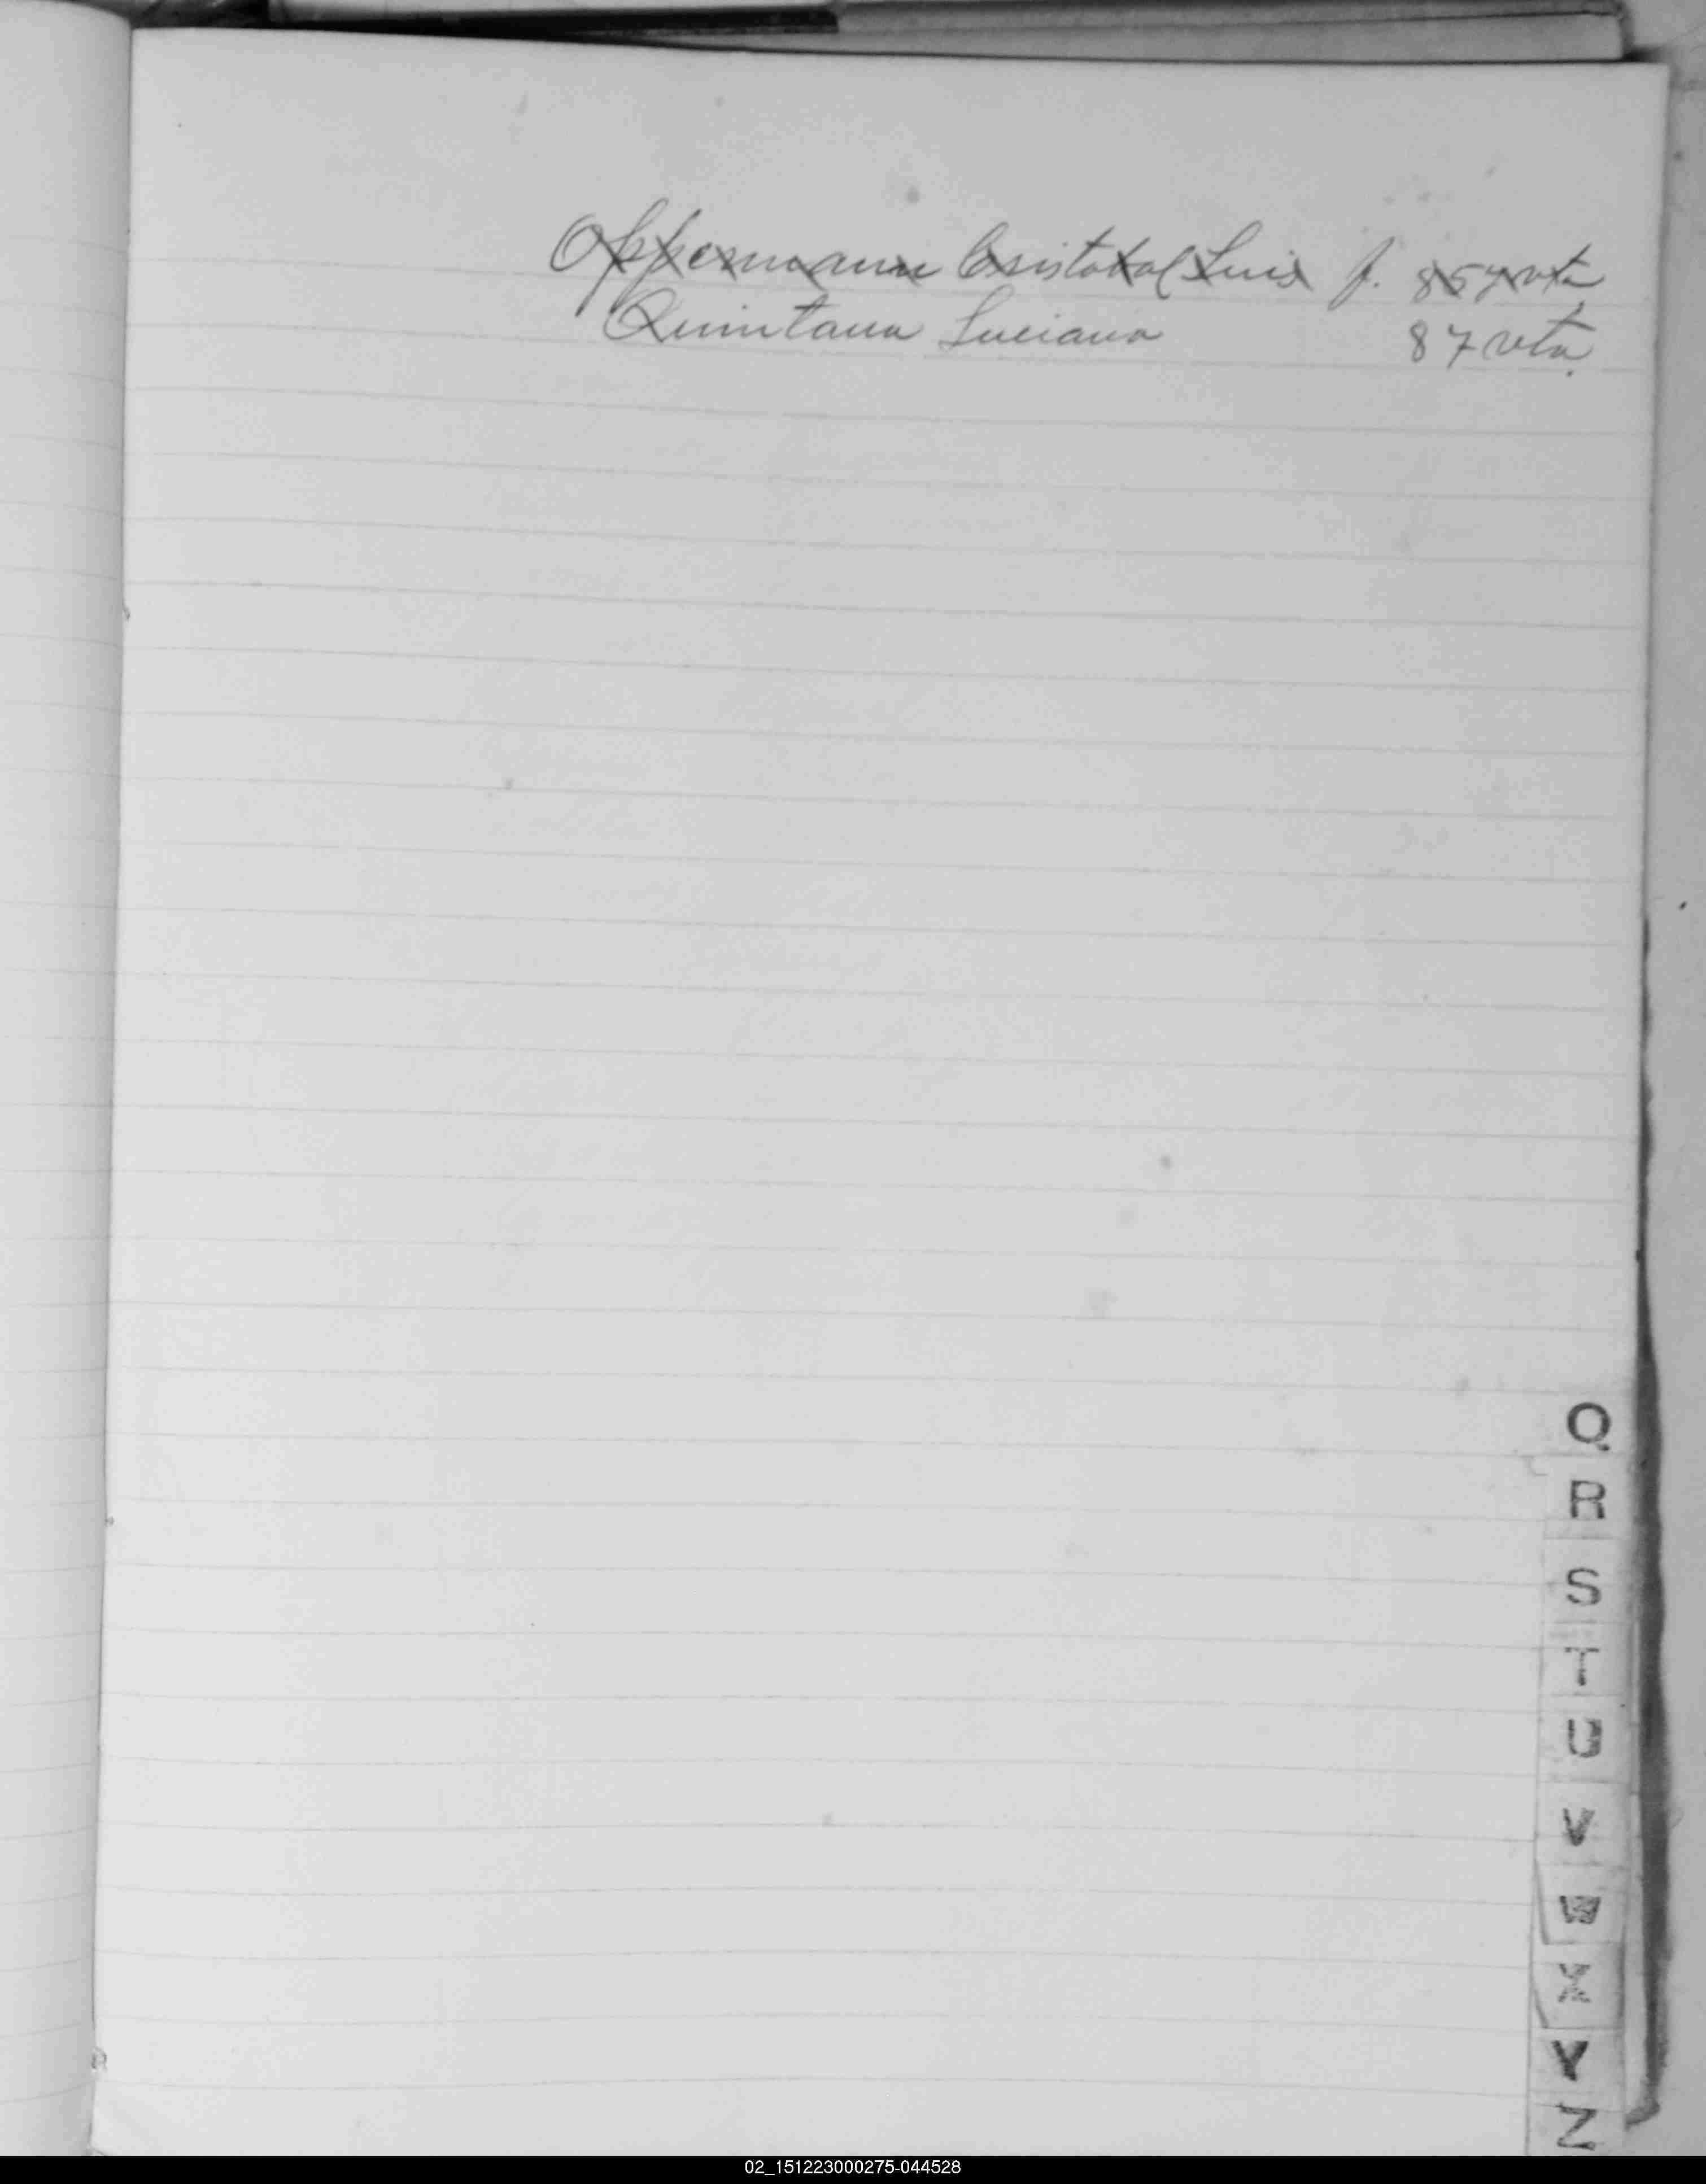 Oppermann Cristobal Luis f. 85 y vta
Quintana Luciana 87 vta.
Q
R
S
T
U
V
W
X
Y
Z
02_151223000275-044528